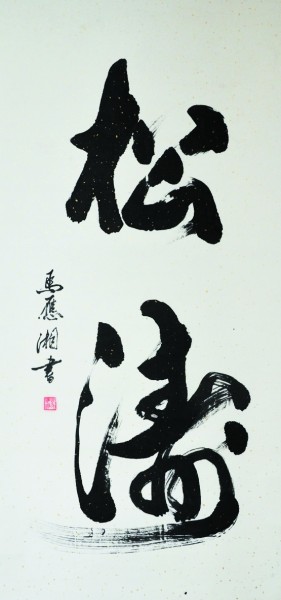 松涛
馬應湘書